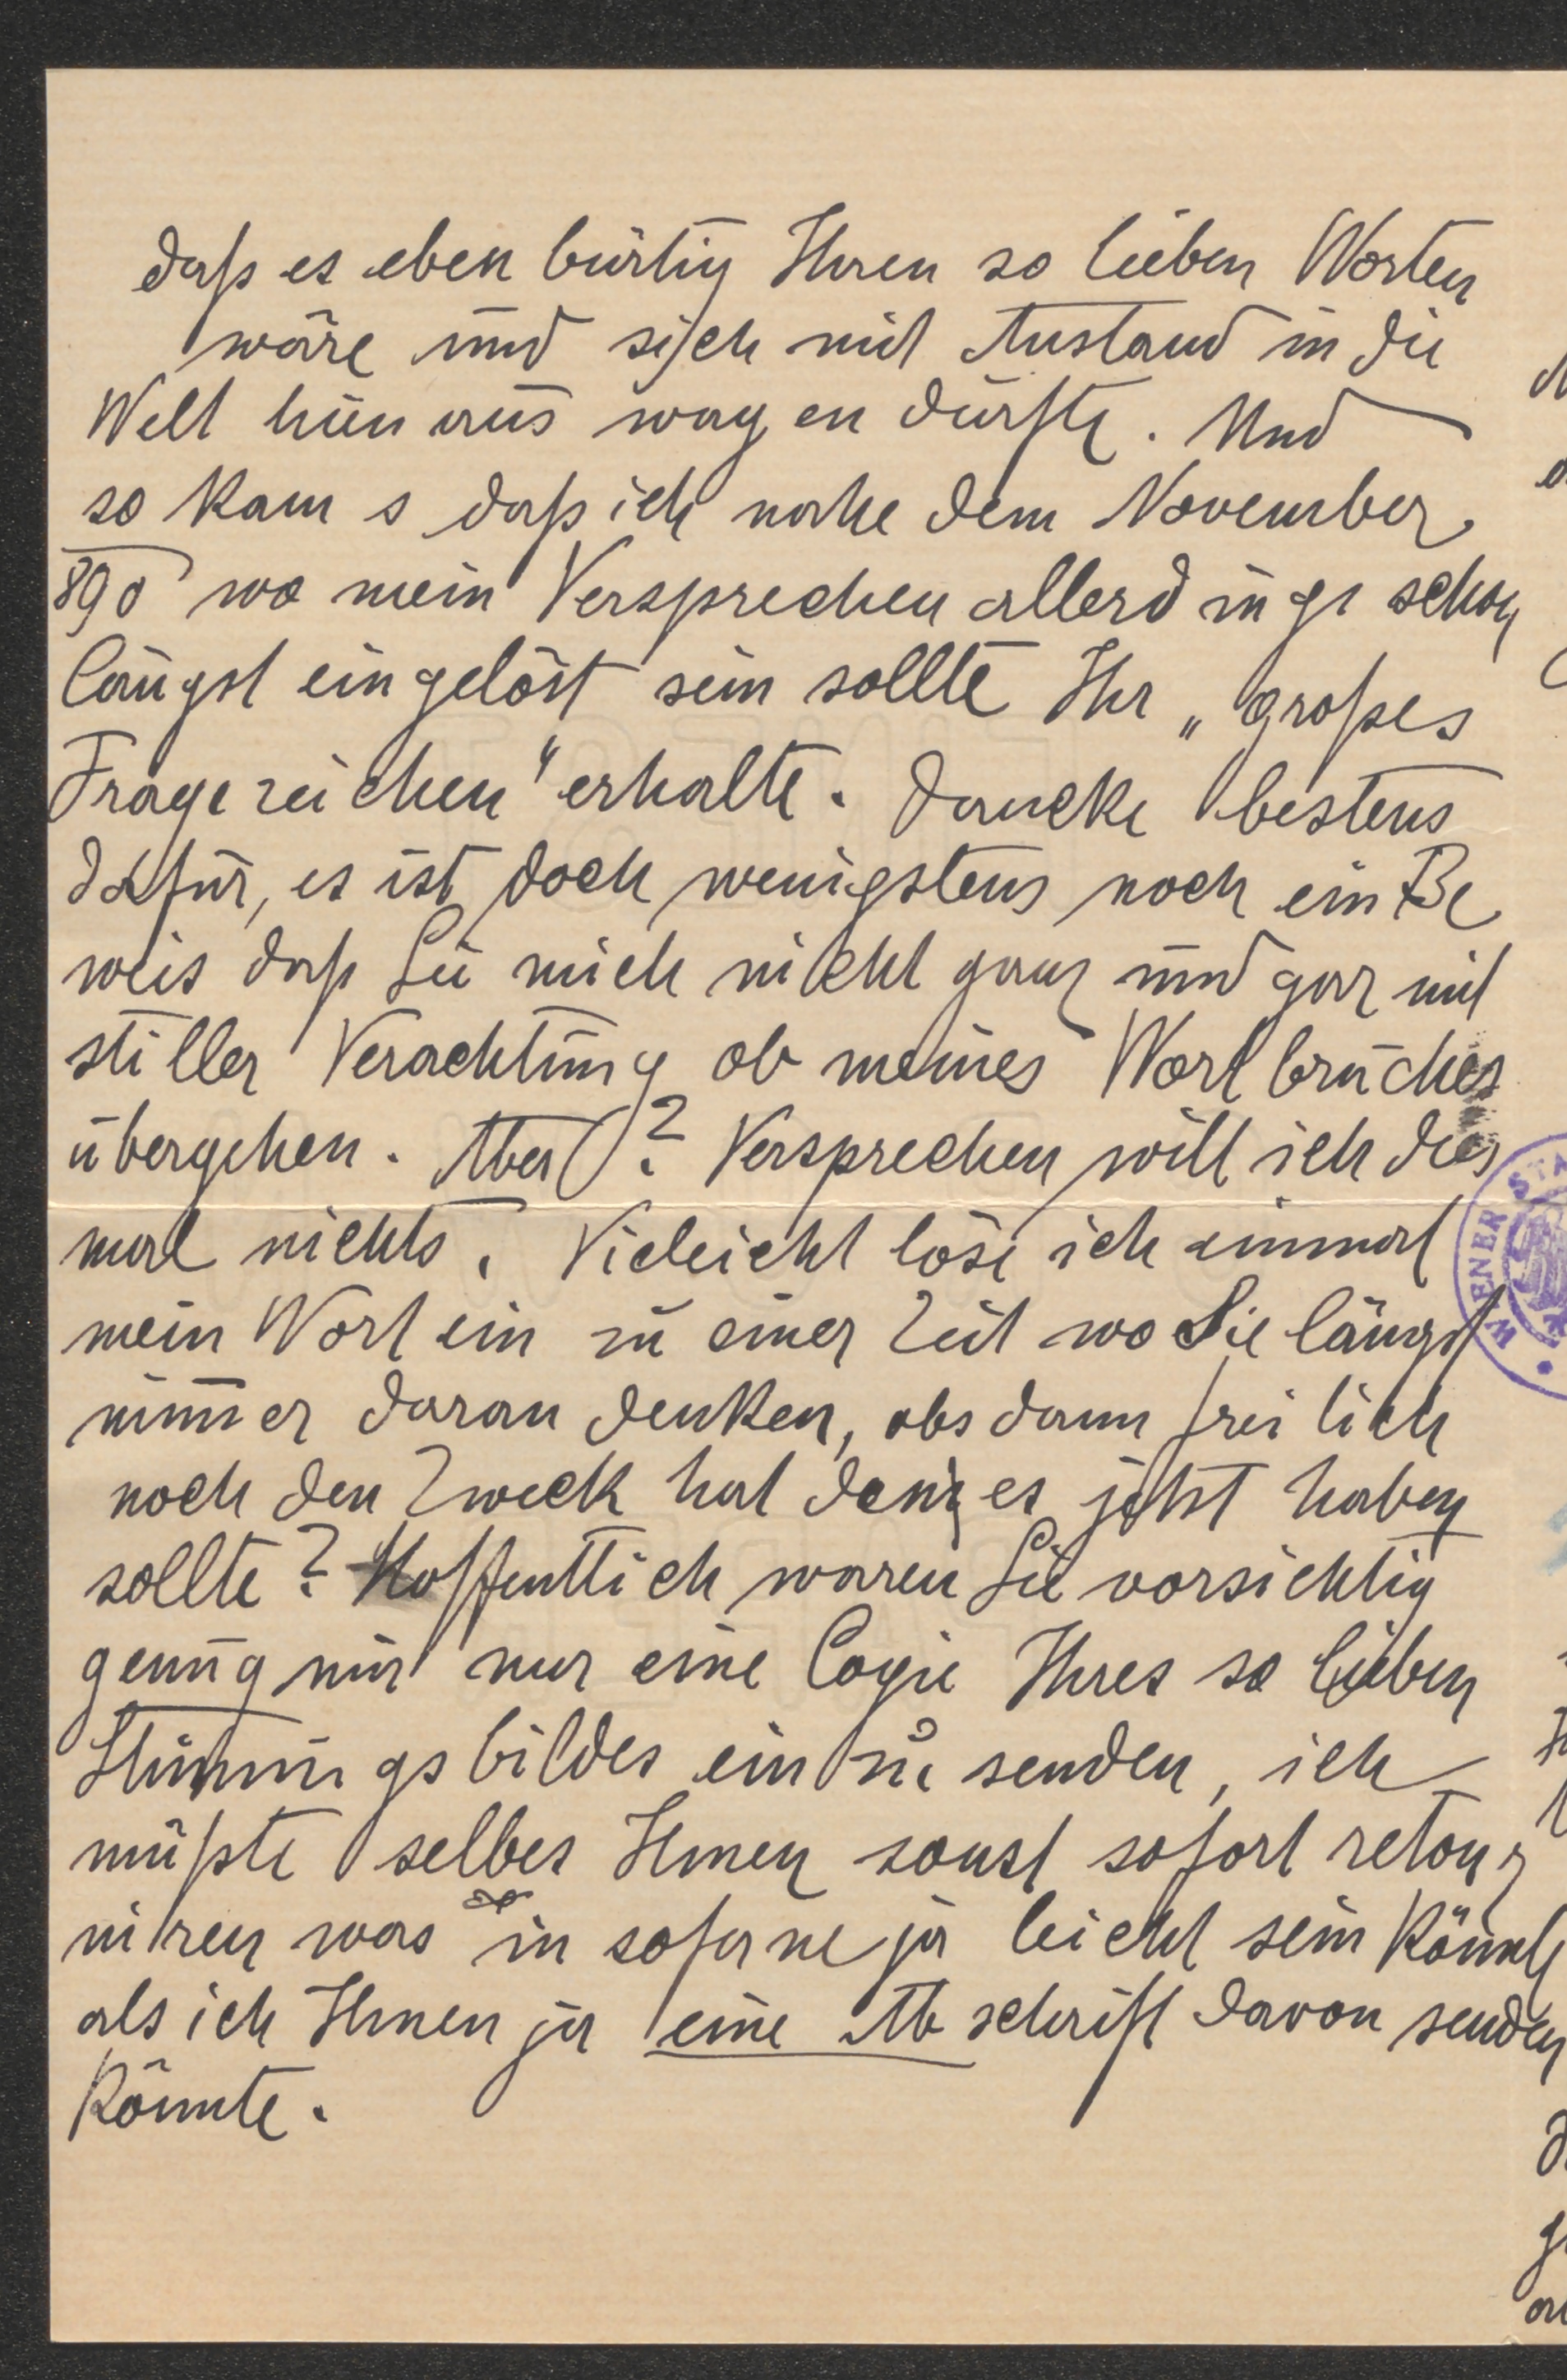 daß es eben bürtig Ihren so lieben Worten
wäre und sich mit Anstand in die
Welt hinnaus wagen dürfte. Und
so kam s daß ich nahe dem November
890 wo mein Versprechen allerdings schon
längst eingelöst sein sollte Ihr „großes
Fragezeichen" erhalte. Dancke bestens
dafür, es ist doch wenigstens noch ein Be
weis daß Sie mich nicht ganz und gar mit
stiller Verachtung ob meines Wortbruches
übergehen. Aber? Versprechen will ich dies
mal nichts. Vieleicht löse ich einmal
mein Wort ein zu einer Zeit wo Sie längst
nimmer daran denken, obs dann freilich
noch den Zweck hat den es jetzt haben
sollte? Hoffentlich waren Sie vorsichtig
genug mir nur eine Copie Ihres so lieben
Stimmungsbildes ein zu senden, ich
müßte selbes Ihnen sonst sofort retour
niren was in soferne ja leicht sein könnte
als ich Ihnen ja eine Abschrift davon senden
könnte.
WIENER STA